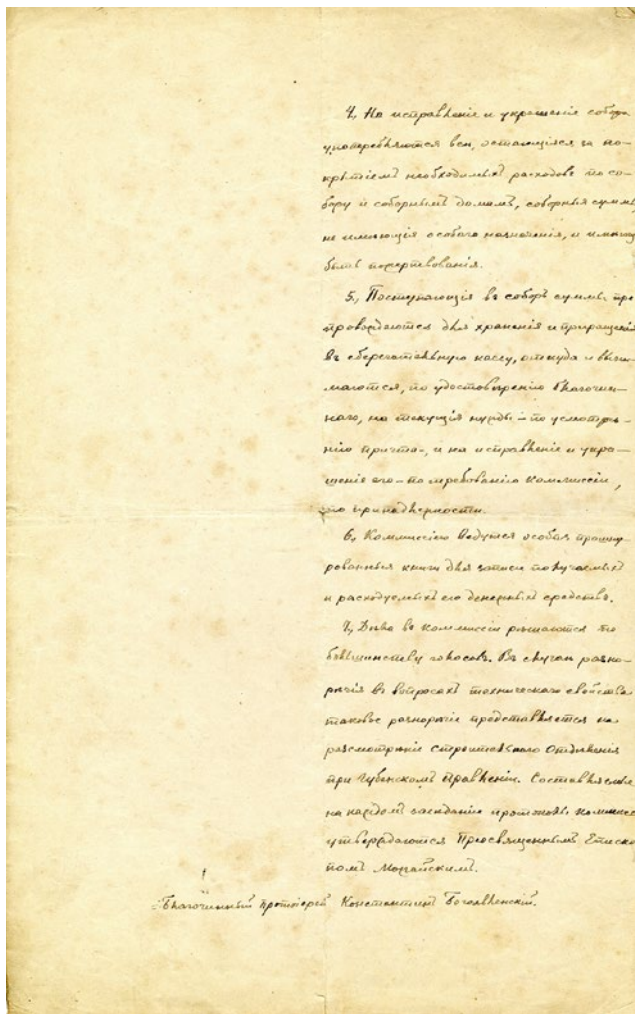 4, На исправленіе и украшеніе собора
употребляются всѣ, остающіяся за по-
крытіемъ необходимыхъ расходовъ по со-
бору и соборнымъ домамъ, соборныя суммы
не имѣющія особаго назначенія, и могущія
быть пожертвованія.
5, Поступающія въ соборъ суммы пре
провождаются для храненія и приращенія
въ сберегательную кассу, откуда и выни-
маются, по удостовѣренію благочин-
наго, на текущія нужды – по усмотрѣ-
нію причта –, и на исправленіе и укра-
шеніе его – по требованію коммиссіи,
по принадлежности.
6, Коммиссіею ведутся особыя прошну-
рованныя книги для записи получаемыхъ
и расходуемыхъ ею денежныхъ средствъ.
7, Дѣла въ коммиссіи рѣшаются по
большинству голосовъ. Въ случаѣ разно-
рѣчія въ вопросахъ техническаго свойства
таковое разнорѣчіе представляется на
разсмотрѣніе Строительнаго Отдѣленія
при Губернскомъ Правленіи. Составляемые
на каждомъ засѣданіи протоколы коммисс
утверждаются Преосвященнымъ Еписко
помъ Можайскимъ.
Благочинный протоіерей Константинъ Богоявленскій.